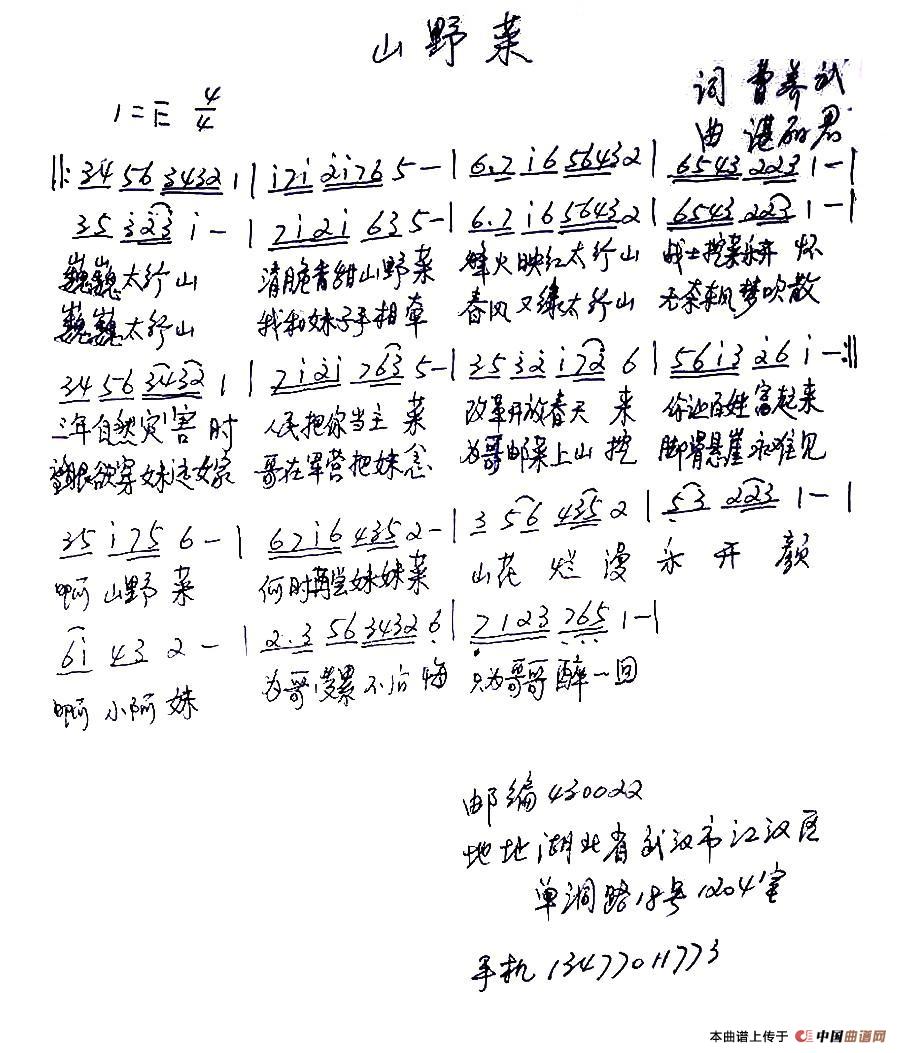 山野菜
词 曹养武
1=E 4/4
曲 谌丽君
‖: 34 56 3432 1 | i7i 2i76 5 — | 6.7 i6 56432 | 6543 223 1 — |
35 i23 i — | 7i2i 635 — | 6.7 i6 56432 | 6543 223 1 — |
巍巍太行山 清脆香甜山野菜 烽火映红太行山 战士挖菜乐开怀
巍巍太行山 我和妹子手相牵 春风又绿太行山 无奈乘风梦吹散
34 56 3432 1 | 7i2i 763 5 — | 35 32 i72 6 | 56i3 26 i — :‖
三年自然灾害时 人民把你当主菜 改革开放春天来 你让百姓富起来
望眼欲穿妹送嫁 哥在军营把妹念 为哥邮菜上山挖 脚滑悬崖永难见
35 i75 6 — | 67i6 4352 — | 3 56 435 2 | 53 223 1 — |
啊 山野菜 何时再尝妹妹菜 山花烂漫乐开颜
6i 43 2 — | 2.3 56 3432 6 | 7123 765 1 — |
啊 小阿妹 为哥受累不后悔 只为哥哥醉一回
邮编430022
地址湖北省武汉市江汉区
单洞路18号1204室
手机13477011773
本曲谱上传于 中国曲谱网